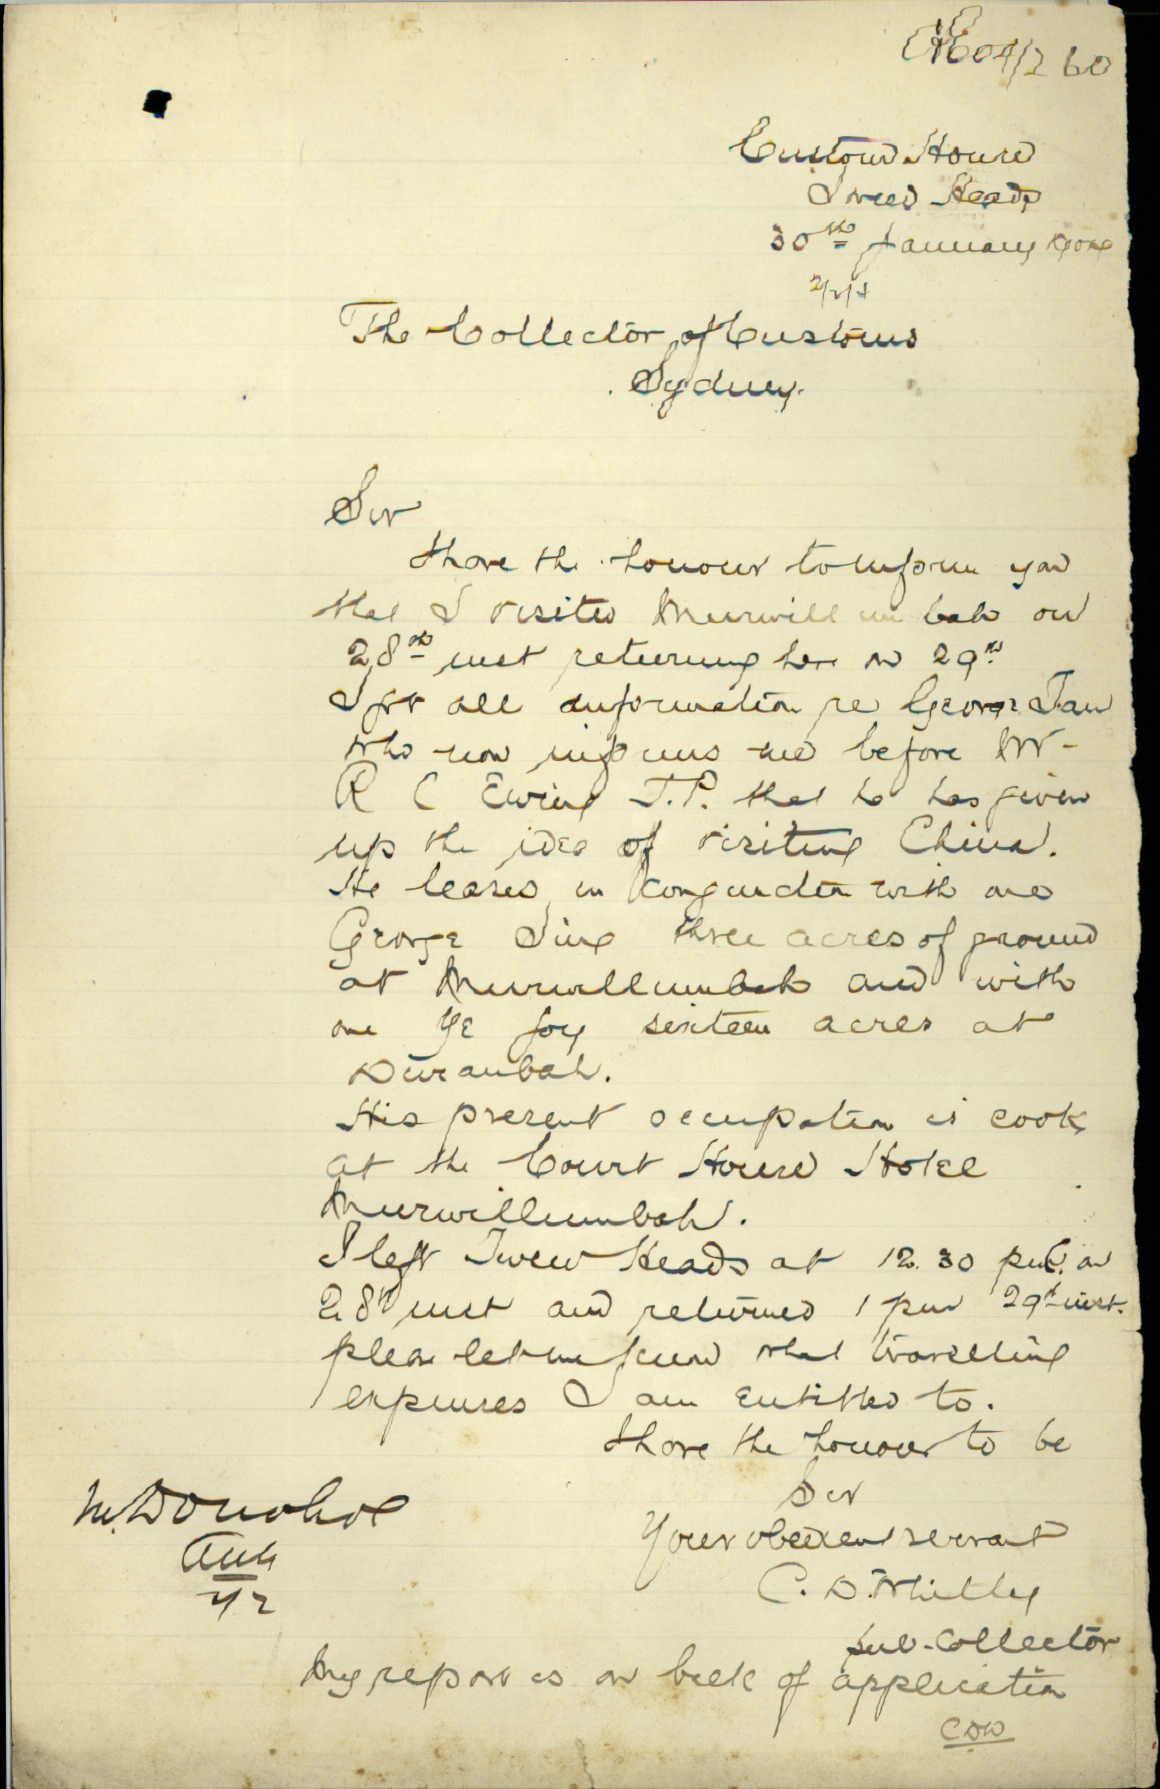 04/260
Custom House
Tweed Heads
30th January
The Collector of Customs
Sydney.
Sir
I have the honour to inform you
that I visited Murwillumbah on
28th inst returning here on 29th
I got all information re George
who now informs me before Mr
R C Ewing J.P. that he has given
up the idea of visiting China.
He leases in conjunction with one
George Sing three acres of ground
at Murwillumbah and with
one Ye Joy sixteen acres at
Duranbah.
His present occupation is cook
at the Court House Hotel
Murwillumbah.
I left Tweed Heads at 12.30 pm. on
28th inst and returned 1 pm 29th inst.
please let me know what travelling
expenses I am entitled to.
I have the honour to be
Sir
Your obedient servant
C. D. Whitley
Sub-Collector
My report is on back of application
CDW
Mr. Donohoe